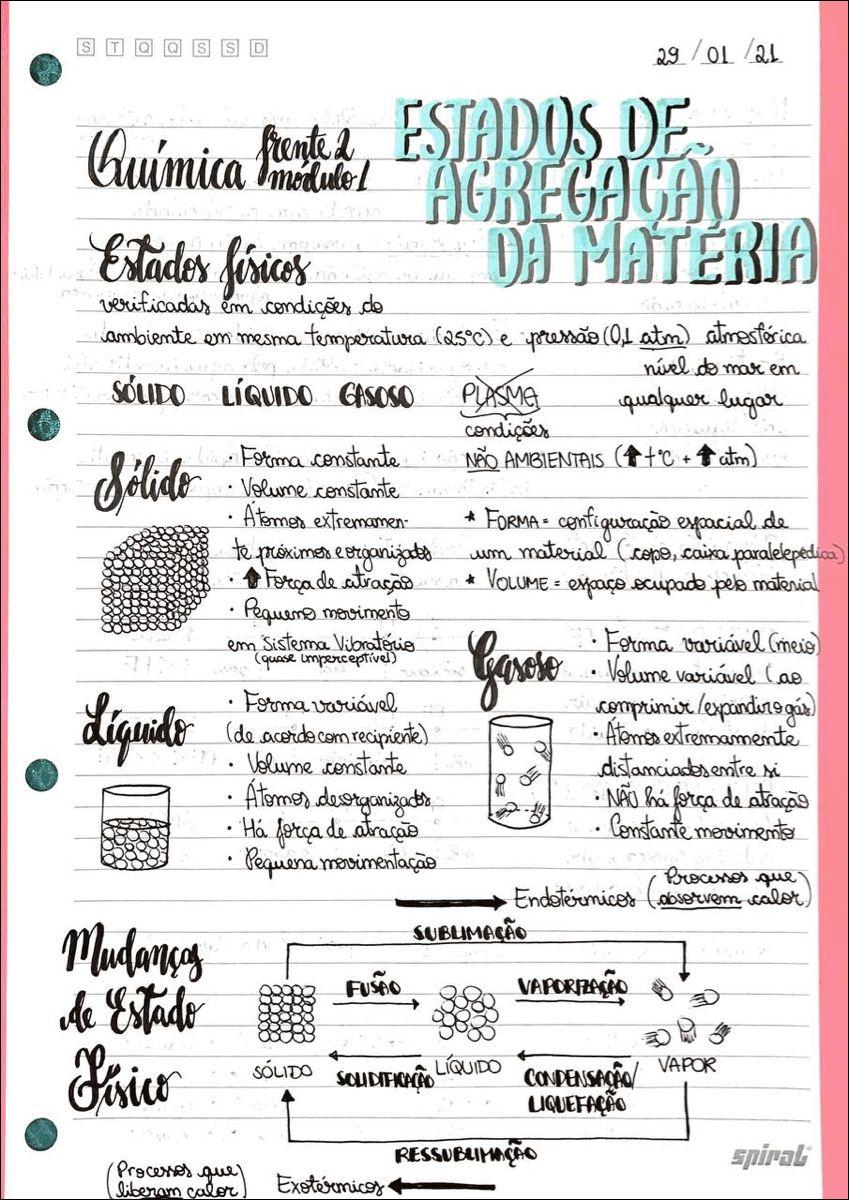 S T Q Q S S D
29 / 01 / 21
Química frente 2
módulo 1
ESTADOS DE
AGREGAÇÃO
DA MATÉRIA
Estados físicos
verificadas em condições do
ambiente em mesma temperatura (25°C) e pressão (0,1 atm) atmosférica
nível do mar em
qualquer lugar
SÓLIDO LÍQUIDO GASOSO PLASMA
condições
NÃO AMBIENTAIS (⬆t°C + ⬆atm)
Sólido
· Forma constante
· Volume constante
· Átomos extremamen-
te próximos e organizados
· ⬆ Força de atração
· Pequeno movimento
em Sistema Vibratório
(quase imperceptível)
* FORMA = configuração espacial de
um material (copo, caixa paralelepédica)
* VOLUME = espaço ocupado pelo material
Gasoso
· Forma variável (meio)
· Volume variável (ao
comprimir/expandir o gás)
· Átomos extremamente
distanciados entre si
· NÃO há força de atração
· Constante movimento
Líquido
· Forma variável
(de acordo com recipiente)
· Volume constante
· Átomos desorganizados
· Há força de atração
· Pequena movimentação
Endotérmicos (Processos que
absorvem calor)
Mudanças
de Estado
Físico
SUBLIMAÇÃO
FUSÃO VAPORIZAÇÃO
SÓLIDO LÍQUIDO VAPOR
SOLIDIFICAÇÃO CONDENSAÇÃO/
LIQUEFAÇÃO
RESSUBLIMAÇÃO
spiral
(Processos que
liberam calor) Exotérmicos